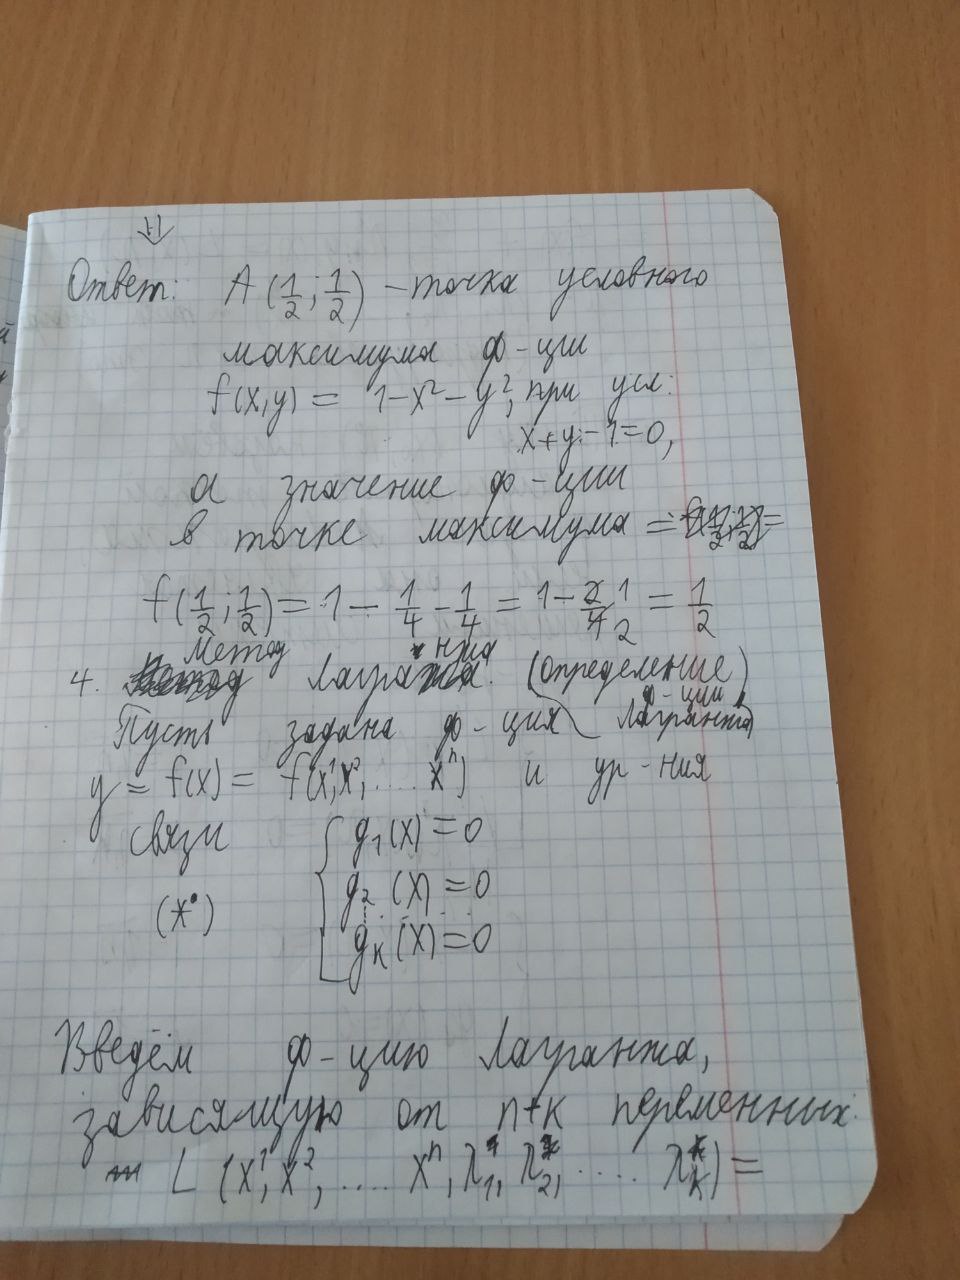 Ответ: A (1/2; 1/2) – точка условного
максимума ф-ции
f(x,y) = 1-x²-y², при усл:
x+y-1=0,
а значение ф-ции
в точке максимума =
f(1/2; 1/2) = 1 - 1/4 - 1/4 = 1 - 2/4 = 1/2
4. Метод Лагранжа. (определение
ф-ции
Пусть задана ф-ция Лагранжа)
y = f(x) = f(x¹, x², .... xⁿ) и ур-ния
связи { g₁(x) = 0
(x*) g₂(x) = 0
gₖ(x) = 0
Введём ф-цию Лагранжа,
зависящую от n+k переменных:
L (x¹, x², .... xⁿ, λ₁, λ₂, .... λₖ) =